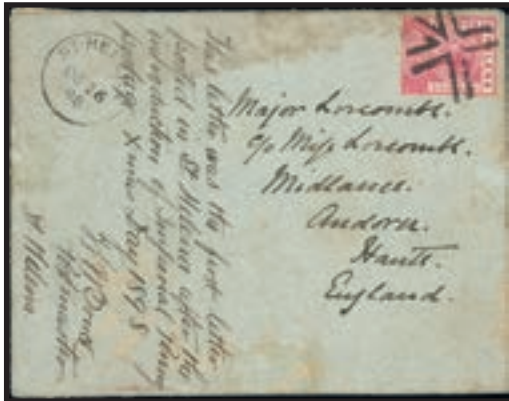 ST. HEL
26
98
Major Lorcombe.
c/o Miss Lorcombe.
Midlance.
Andover.
Hants.
England.
This letter was the first letter
posted in St Helena after the
introduction of Imperial Penny
postage Xmas Day 1898
Postmaster
St Helena